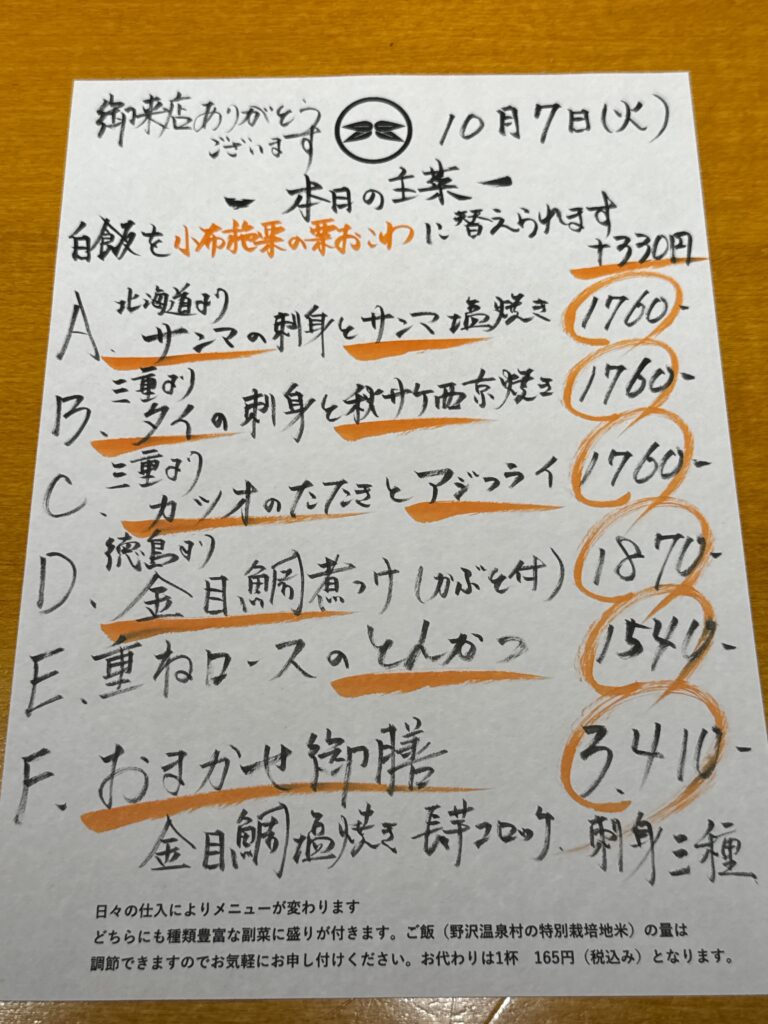 御来店ありがとう
ございます
10月7日(火)
- 本日の主菜 -
白飯を小布施栗の栗おこわに替えられます
+330円
北海道より
A. サンマの刺身とサンマ塩焼き 1760-
三重より
B. タイの刺身と秋サケ西京焼き 1760-
三重より
C. カツオのたたきとアジフライ 1760-
徳島より
D. 金目鯛煮つけ(かぶと付) 1870-
E. 重ねロースのとんかつ 1540-
F. おまかせ御膳 3,410-
金目鯛塩焼き 長芋コロッケ、刺身三種
日々の仕入によりメニューが変わります
どちらにも種類豊富な副菜に盛りが付きます。ご飯(野沢温泉村の特別栽培地米)の量は
調節できますのでお気軽にお申し付けください。お代わりは1杯 165円(税込み)となります。